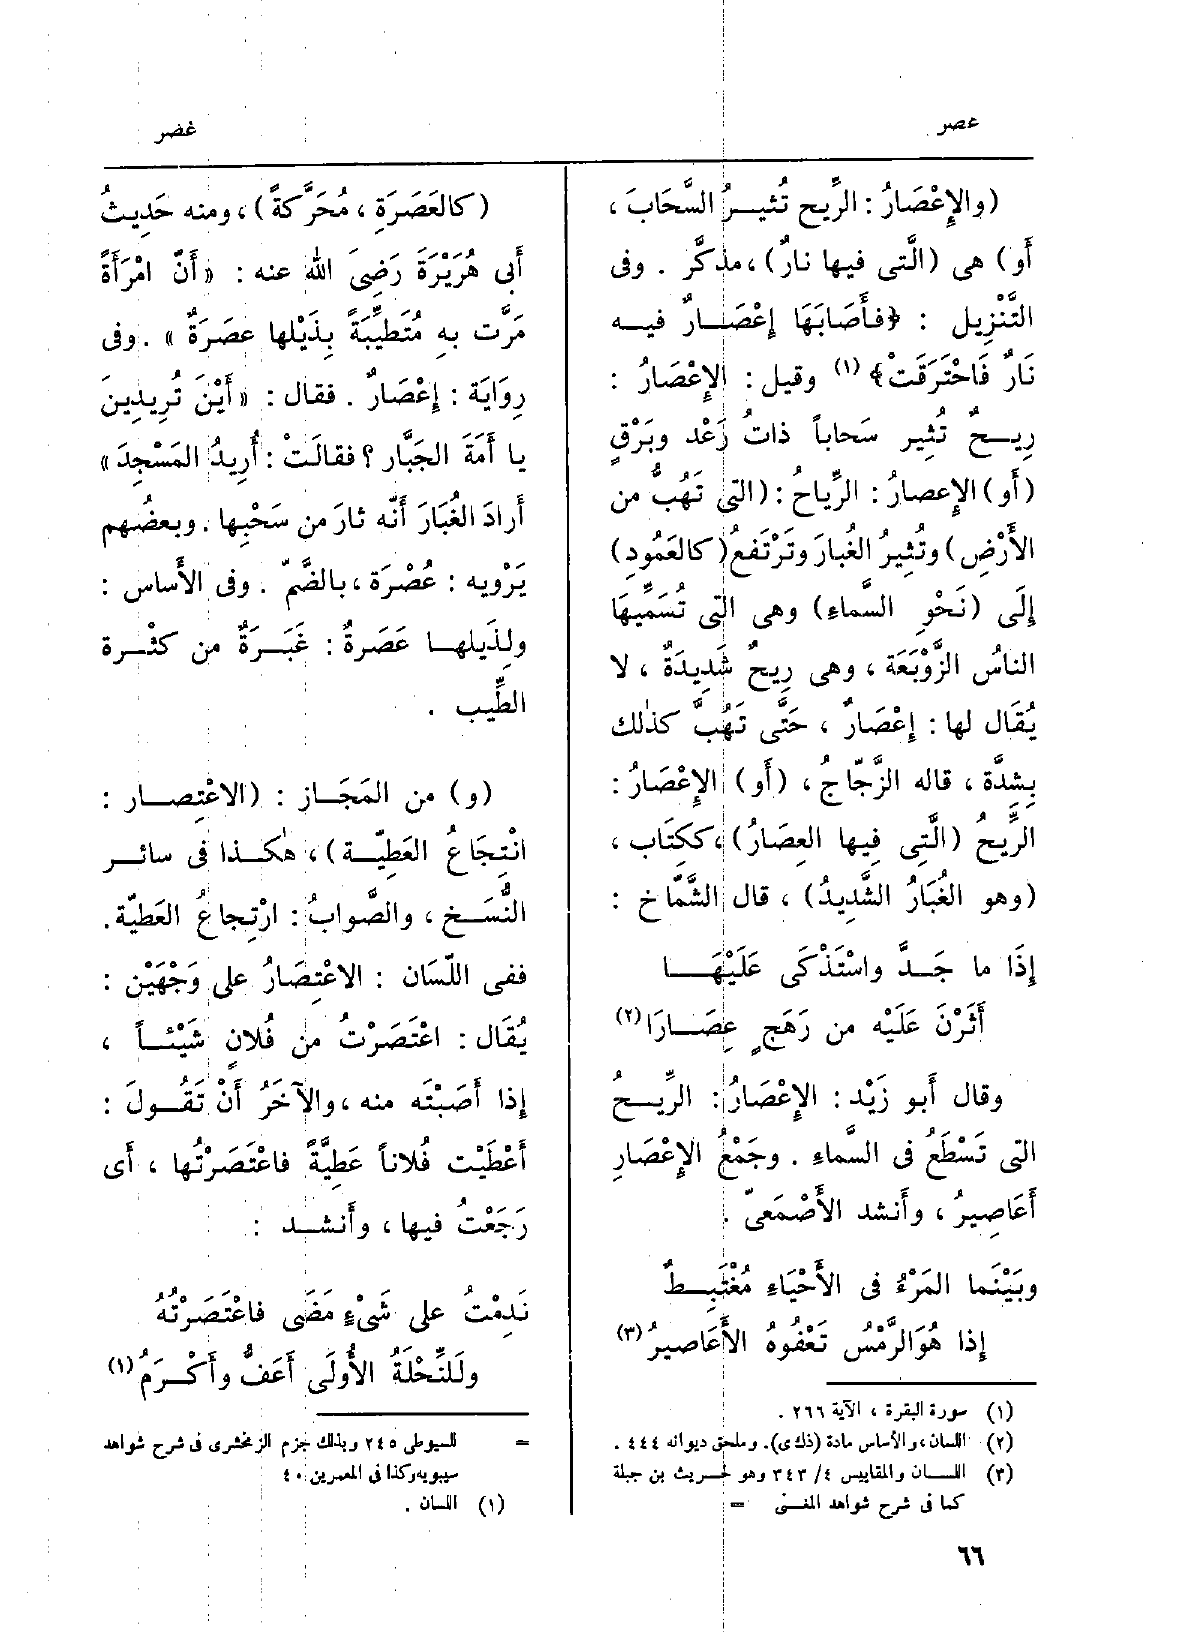 عصر
غضر
(والإِعْصَارُ : الرِّيح تُثيرُ السَّحَابَ ،
أَو) هى (الَّتى فيها نارٌ) ، مذكَّر . وفى
التَّنْزِيل : ﴿فأَصَابَهَا إِعْصَارٌ فيه
نَارٌ فَاحْتَرَقَتْ﴾ (١) وقيل : الإِعْصَارُ :
رِيحٌ تُثِير سَحاباً ذاتُ رَعْد وبَرْقٍ
(أَو) الإِعصارُ : الرِّياحُ : (التى تَهُبُّ من
الأَرْضِ) وتُثِيرُ الغُبارَ وتَرْتَفعُ (كالعَمُودِ)
إِلَى (نَحْوِ السَّماءِ) وهى الّتى تُسَمِّيهَا
الناسُ الزَّوْبَعَة ، وهى رِيحٌ شَدِيدَةٌ ، لا
يُقَال لها : إِعْصَارٌ ، حَتَّى تَهُبَّ كذٰلك
بِشِدَّة ، قاله الزَّجّاجُ ، (أَو) الإِعْصَارُ :
الرِّيحُ (الَّتِى فِيها العِصَارُ) ، ككِتَاب ،
(وهو الغُبَارُ الشَّدِيدُ) ، قال الشَّمّاخ :
إِذَا ما جَدَّ واسْتَذْكَى عَلَيْهَا
أَثَرْنَ عَلَيْه من رَهَجٍ عِصَارَا (٢)
وقال أَبو زَيْد : الإِعْصَارُ : الرِّيحُ
التى تَسْطَعُ فى السَّماءِ . وجَمْعُ الإِعْصَارِ
أَعَاصِيرُ ، وأَنشد الأَصْمَعِىّ .
وبَيْنَما المَرْءُ فى الأَحْيَاءِ مُغْتَبِطٌ
إِذا هُوَ الرَّمْسُ تَعْفُوهُ الأَعَاصيرُ (٣)
(١) سورة البقرة ، الآية ٢٦٦ .
(٢) اللسان ، والأساس مادة (ذكى). وملحق ديوانه ٤٤٤ .
(٣) اللسان والمقاييس ٤/ ٣٤٣ وهو لحريث بن جبلة
كما فى شرح شواهد المغنى =
(كالعَصَرَةِ ، مُحَرَّكةً) ، ومنه حَدِيثُ
أَبى هُرَيْرَةَ رَضِىَ الله عنه : « أَنّ امْرَأَةً
مَرَّت به مُتَطيِّبَةً بِذَيْلِها عصَرَةٌ » . وفى
رِوَايَة : إِعْصَارٌ . فقال : « أَيْنَ تُرِيدِينَ
يا أَمَةَ الجَبَّار ؟ فقالَتْ : أُرِيدُ المَسْجِدَ »
أَرادَ الغُبَارَ أَنّه ثارَ من سَحْبِها . وبعضُهم
يَرْوِيه : عُصْرَة ، بالضَّمّ . وفى الأَساس :
ولِذَيلِها عَصَرَةٌ : غَبَرَةٌ من كثْرة
الطِّيب .
(و) من المَجَاز : (الاعْتِصار :
انْتِجَاعُ العَطِيّة) ، هٰكذا فى سائر
النُّسَخ ، والصَّوابُ : ارْتِجاعُ العَطيّة .
ففى اللّسَان : الاعْتِصَارُ على وَجْهَيْن :
يُقَال : اعْتَصَرْتُ من فُلانٍ شَيْئاً ،
إِذا أَصَبْتَه منه ، والآخَرُ أَنْ تَقُولَ :
أَعْطَيْت فُلاناً عَطِيَّةً فاعْتَصَرْتُها ، أَى
رَجَعْتُ فيها ، وأَنشد :
نَدِمْتُ على شَىْءٍ مَضَى فاعْتَصَرْتُهُ
وَلَلنِّحْلَةُ الأُولَى أَعَفُّ وأَكْرَمُ (١)
= للسيوطى ٢٤٥ وبذلك جزم الزمخشرى فى شرح شواهد
سيبويه وكذا فى المعمرين ٤٠
(١) اللسان .
٦٦